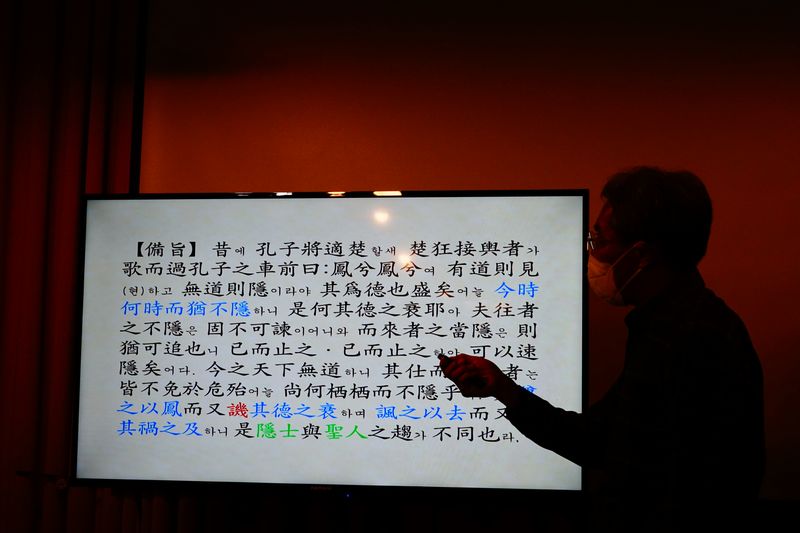 【備旨】 昔에 孔子將適楚할새 楚狂接輿者가
歌而過孔子之車前曰:鳳兮鳳兮여 有道則見
(현)하고 無道則隱이라야 其爲德也盛矣어늘 今時
何時而猶不隱하니 是何其德之衰耶아 夫往者
之不隱은 固不可諫이어니와 而來者之當隱은 則
猶可追也니 已而止之·已而止之하야 可以速
隱矣어다. 今之天下無道하니 其仕而 者는
皆不免於危殆어늘 尙何栖栖而不隱乎
之以鳳而又譏其德之衰하며 諷之以去而又
其禍之及하니 是隱士與聖人之趨가 不同也라.